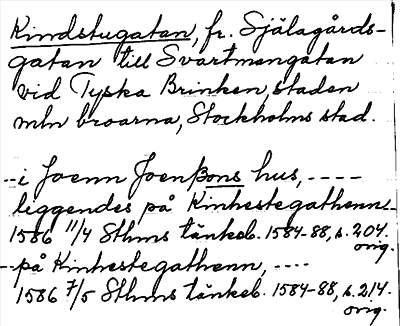 Kindstugatan, fr. Själagårds-
gatan till Svartmangatan
vid Tyska Brinken, staden
mln broarna, Stockholms stad.
--i Joenn Joenẞons hus, ----
liggendes på Kinhestegathenn--
1586 11/4 Sthms tänkeb. 1584-88, s. 204.
orig.
--på Kinhestegathenn, ----
1586 7/5 Sthms tänkeb. 1584-88, s. 214.
orig.